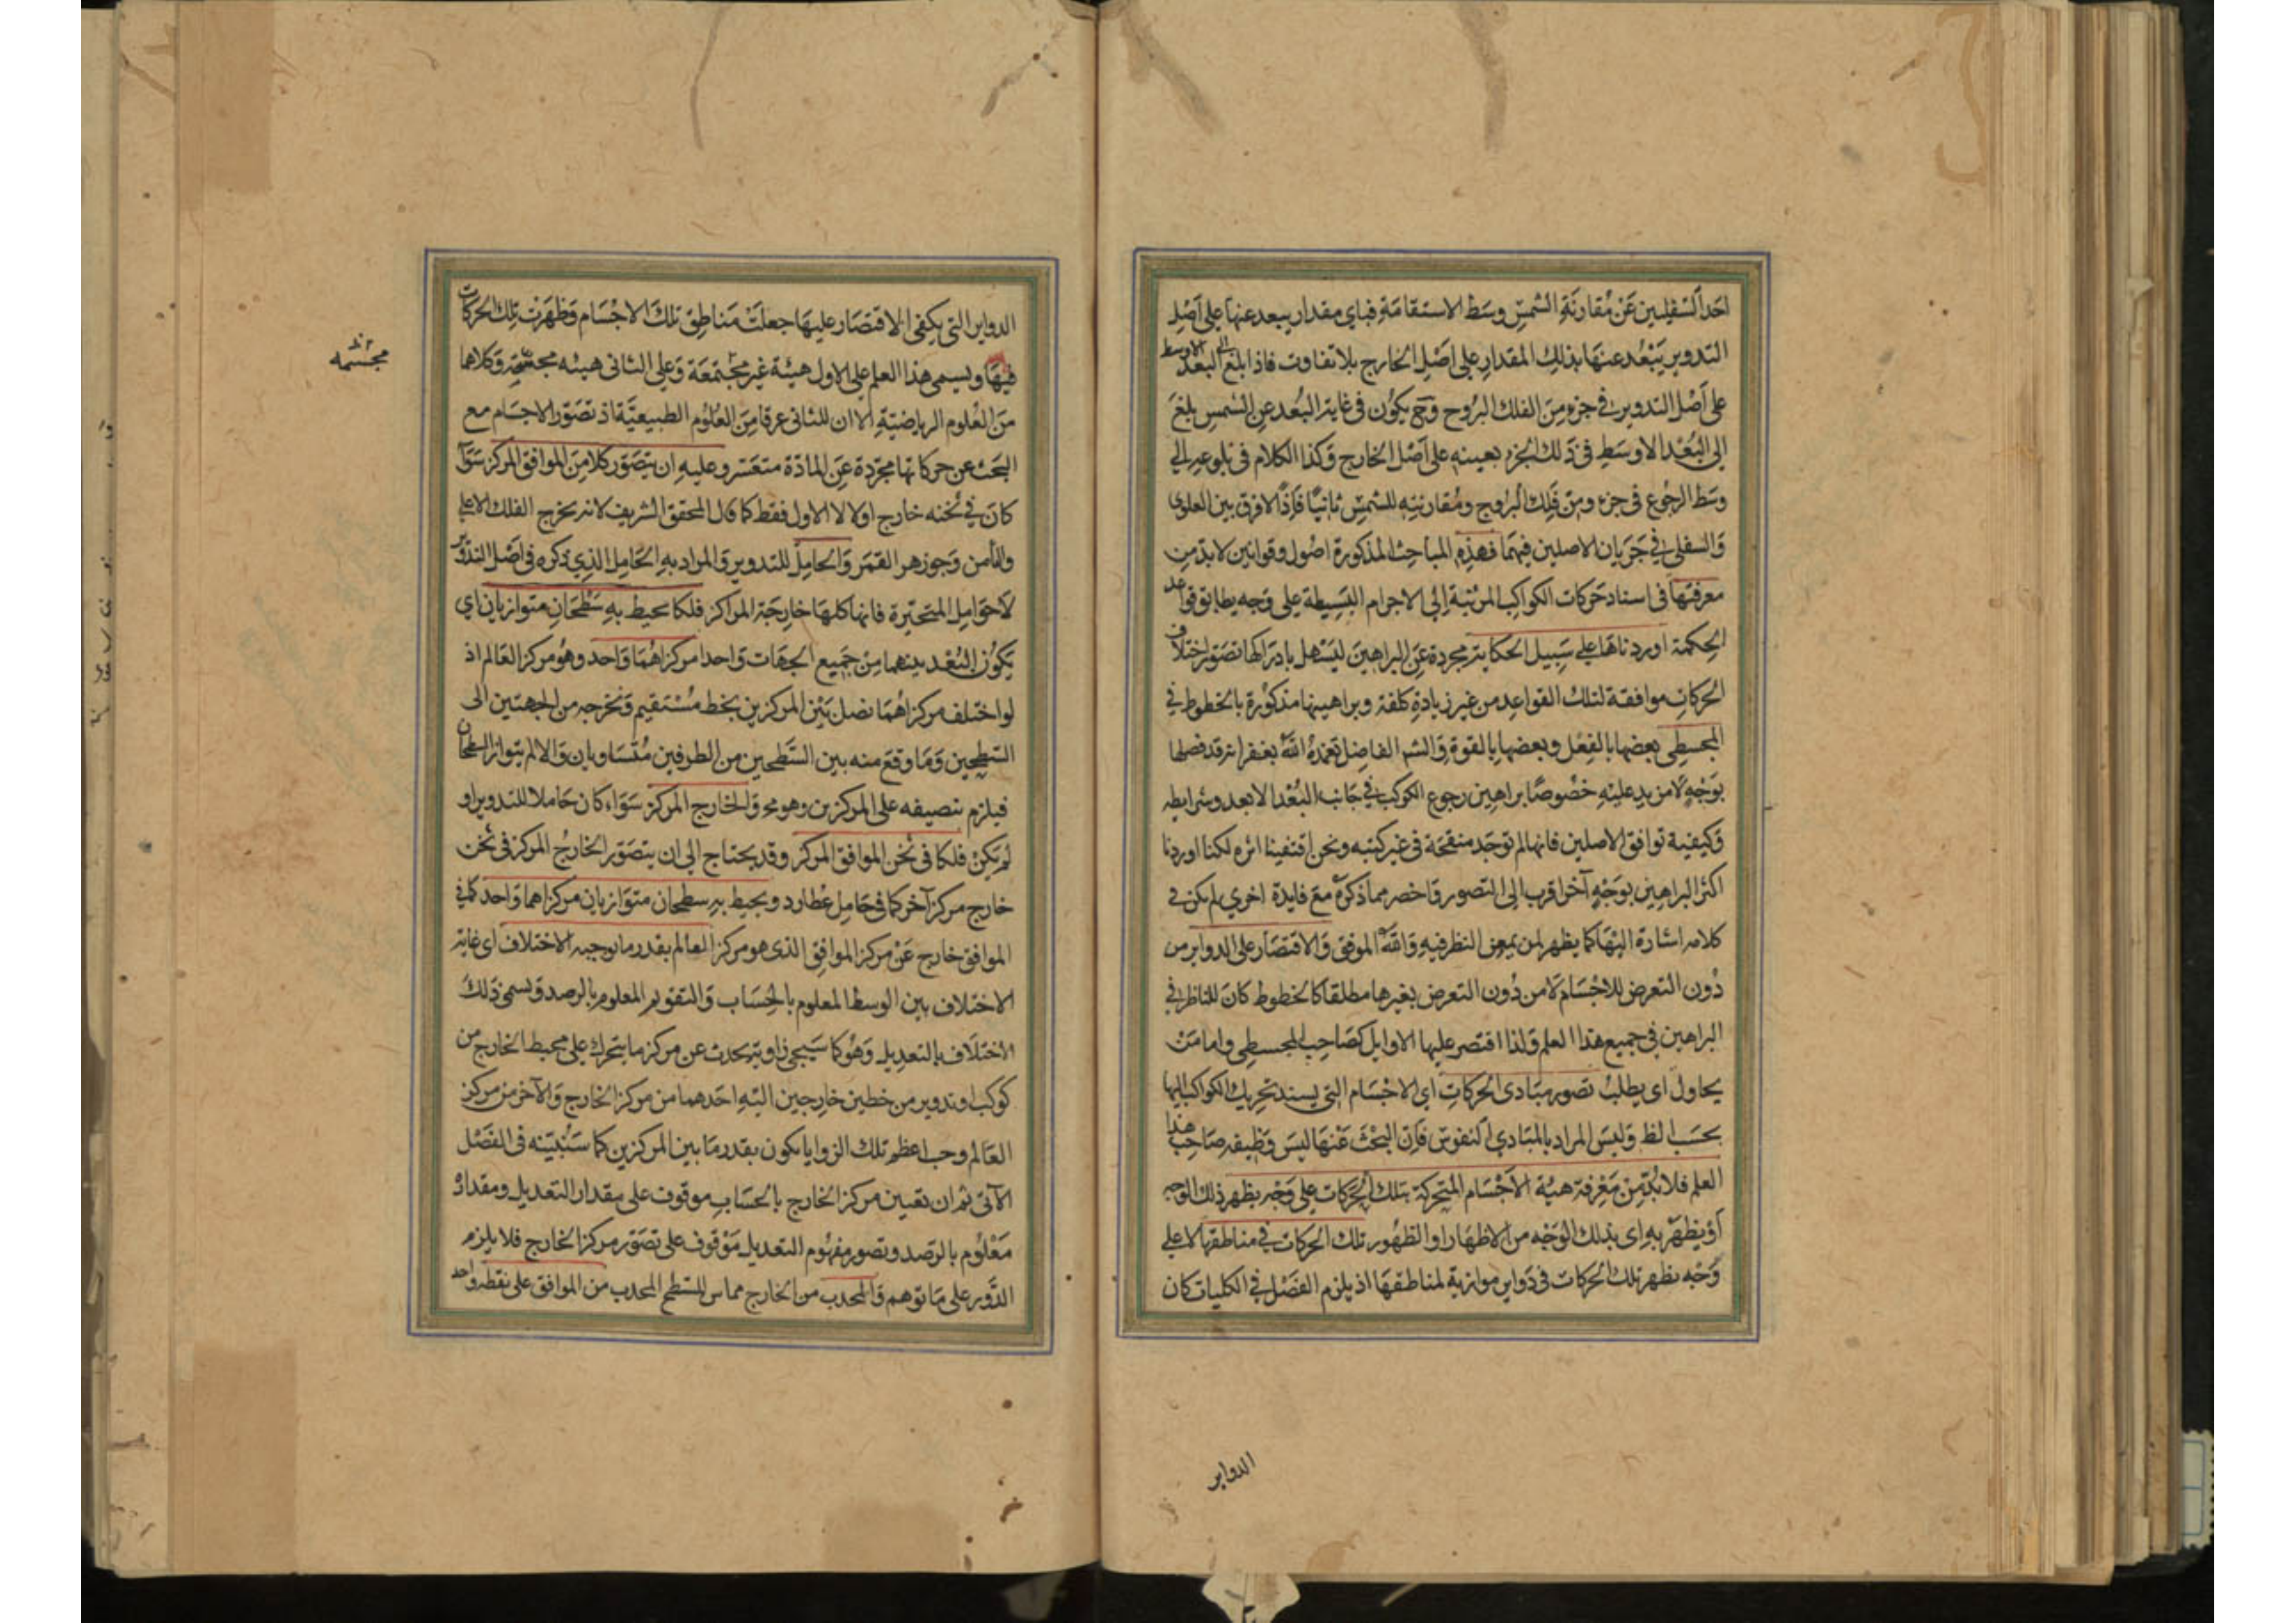 احد السفليين عن مقارنة الشمس وسط الاستقامة فباي مقدار يبعد عنها على اصل
التدوير يبعد عنها بذلك المقدار على اصل الخارج بلا تفاوت فاذا بلغ الى البعد الاوسط
على اصل التدوير في جزء من الفلك البروح وح يكون في غاية البعد عن الشمس بلغ
الى البعد الاوسط في ذلك الجزء بعينه على اصل الخارج وكذا الكلام في بلوغه الى
وسط الرجوع في جزء من فلك البروج ومقارنته للشمس ثانيا فاذا لا فرق بين العلوى
والسفلى في جريان الاصلين فيهما فهذه المباحث المذكورة اصول وقوانين لا بد من
معرفتها في اسناد حركات الكواكب المرئية الى الاجرام البسيطة على وجه يطابق قواعد
الحكمة اوردناها على سبيل الحكاية مجردة عن البراهين ليسهل بادراكها تصور اختلاف
الحركات موافقة لتلك القواعد من غير زيادة كلفة وبراهينها مذكورة بالخطوط في
المجسطى بعضها بالفعل وبعضها بالقوة والشه الفاضل تغمده الله بغفرانه قد فصلها
بوجه لا مزيد عليه خصوصا براهين رجوع الكوكب في جانب البعد الابعد وشرايطه
وكيفية توافق الاصلين فانها لم توجد منقحة في غير كتبه ونحن اقتفينا اثره لكنا اوردنا
اكثر البراهين بوجه آخر اقرب الى التصور واخصر مما ذكره مع فايدة اخرى لم يكن في
كلامه اشارة اليها كما يظهر لمن يمعن النظر فيه والله الموفق والاقتصار على الدواير من
دون التعرض للاجسام لا من دون التعرض بغيرها مطلقا كالخطوط كان للناظر في
البراهين في جميع هذا العلم ولذا اقتصر عليها الاوايل كصاحب المجسطى واما من
يحاول اى يطلب تصور مبادى الحركات اى الاجسام التى يسند تحريك الكواكب اليها
بحسب الظ وليس المراد بالمبادى النفوس فان البحث عنها ليس وظيفة صاحب هذا
العلم فلا بد من معرفة هيئة الاجسام المتحركة بتلك الحركات على وجه يظهر ذلك الوجه
او يظهر به اى بذلك الوجه من الاظهار او الظهور تلك الحركات في مناطقها لا على
وجه يظهر تلك الحركات في دواير موازية لمناطقها اذ يلزم الفضل في الكليات كان
الدواير
الدواير التى يكفى الاقتصار عليها جعلت مناطق تلك الاجسام وظهرت تلك الحركات
فيها ويسمى هذا العلم على الاول هيئة غير مجتمعة وعلى الثانى هيئه مجسمة وكلاهما
مجسمه
من العلوم الرياضية الا ان للثانى عرقا من العلوم الطبيعية اذ تصور الاجسام مع
البحث عن حركاتها مجردة عن المادة متعسر وعليه ان يتصور كلا من الموافق المركز سوآ
كان في ثخنه خارج اولا لا الاول فقط كما قال المحقق الشريف لانه يخرج الفلك الاعلى
والثامن وجوزهر القمر والحامل للتدوير والمراد به الحامل الذي ذكره في اصل التدوير
لا حوامل المتحيرة فانها كلها خارجة المراكز فلكا يحيط به سطحان متوازيان اى
يكون البعد بينهما من جميع الجهات واحدا مركزاهما واحد وهو مركز العالم اذ
لو اختلف مركزاهما نصل بين المركزين بخط مستقيم ونخرجه من الجهتين الى
السطحين وما وقع منه بين السطحين من الطرفين متساويان والا لم يتواز السطحان
فيلزم تنصيفه على المركزين وهو مح والخارج المركز سواء كان حاملا للتدوير او
لم يكن فلكا في ثخن الموافق المركز وقد يحتاج الى ان يتصور الخارج المركز في ثخن
خارج مركز آخر كما في حامل عطارد ويحيط به سطحان متوازيان مركزاهما واحد كما في
الموافق خارج عن مركز الموافق الذى هو مركز العالم بقدر ما يوجبه الاختلاف اى غاية
الاختلاف بين الوسط المعلوم بالحساب والتقويم المعلوم بالرصد ويسمى ذلك
الاختلاف بالتعديل وهو كما سيجى زاوية تحدث عن مركز ما يتحرك على محيط الخارج من
كوكب او تدوير من خطين خارجين اليه احدهما من مركز الخارج والآخر من مركز
العالم وجب اعظم تلك الزوايا يكون بقدر ما بين المركزين كما سنبينه في الفصل
الآتى ثم ان تعيين مركز الخارج بالحساب موقوف على مقدار التعديل ومقداره
معلوم بالرصد وتصور مفهوم التعديل موقوف على تصور مركز الخارج فلا يلزم
الدور على ما توهم والمحدب من الخارج مماس للسطح المحدب من الموافق على نقطة واحد